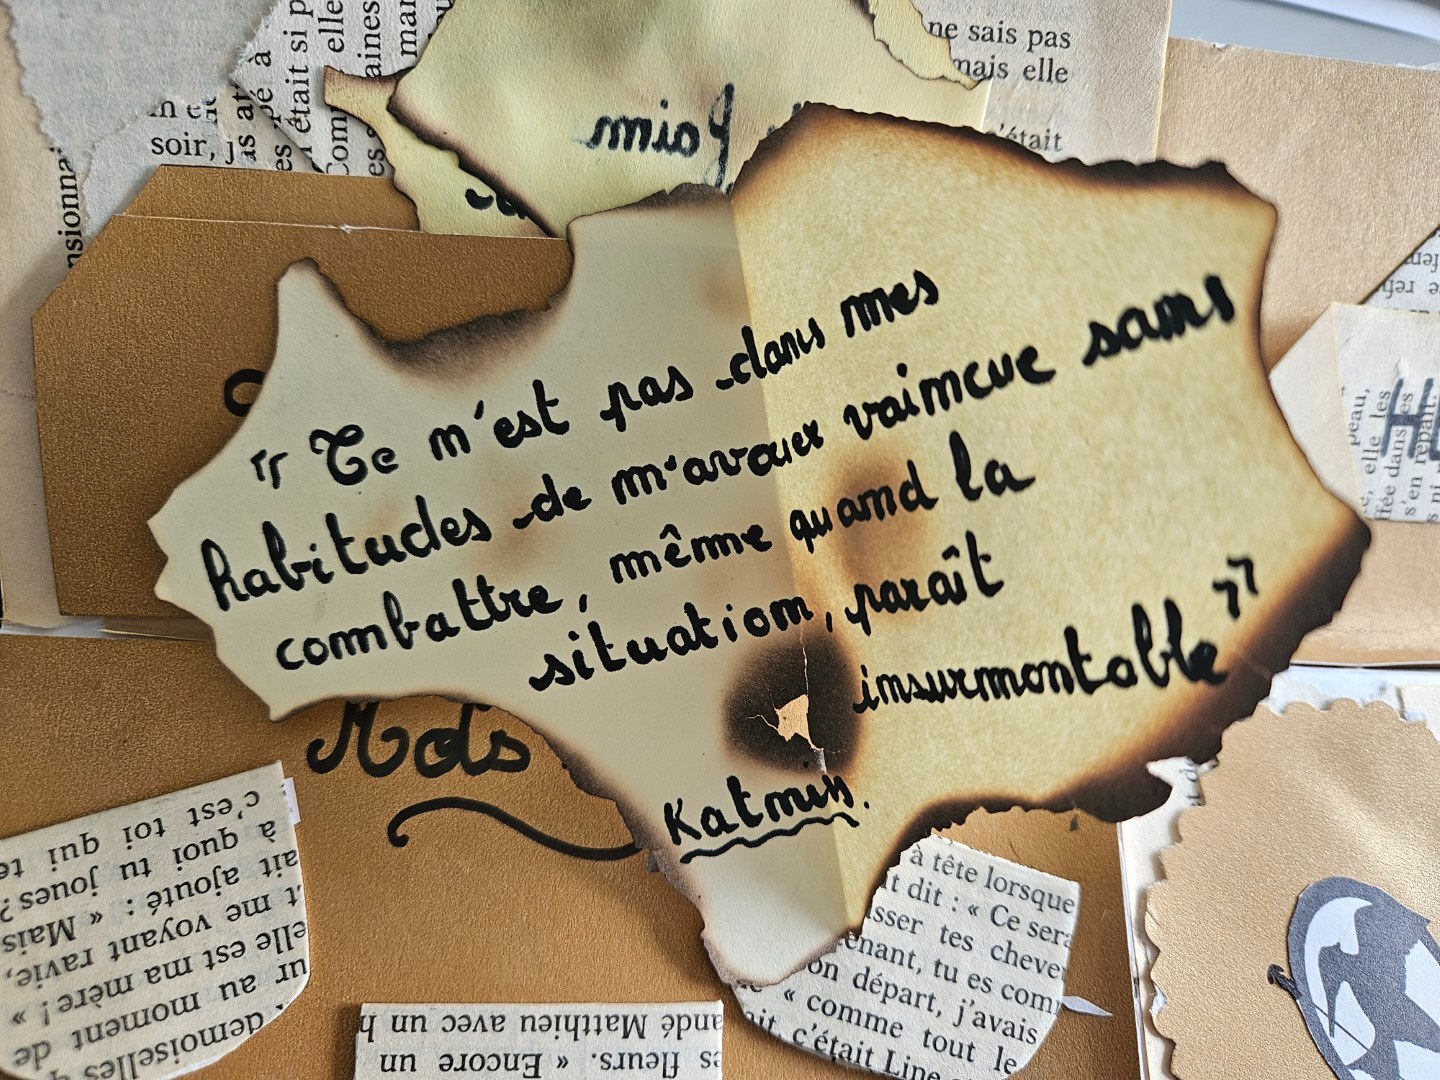 ne sais pas
mais elle
c'était
soir,
était si p
Join
" Ce n'est pas dans mes
habitudes de m'avouer vaincue sans
combattre, même quand la
situation, paraît
insurmontable"
Katniss.
Mots
c'est toi qui te
à quoi tu joues ?
ait ajouté : « Mais
t me voyant ravie,
elle est ma mère ! »
ur au moment de
demoiselles
andé Matthieu avec un h
es fleurs. « Encore un
à tête lorsque
it dit : « Ce sera
isser tes cheve
enant, tu es com
on départ, j'avais
« comme tout le
ait, c'était Line
peau,
, elle les
fée dans ses
s'en repaît.